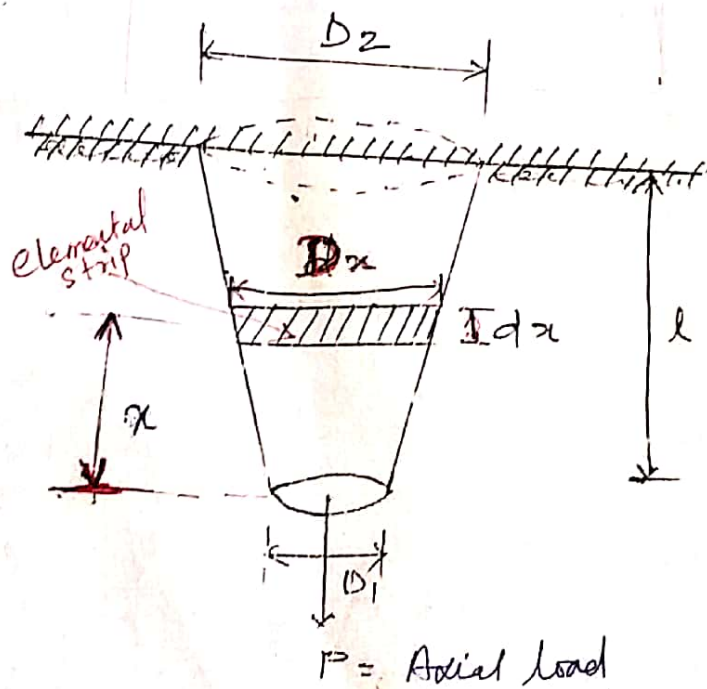 D2
elemental
strip
Dx
dx
l
x
D1
P = Axial load